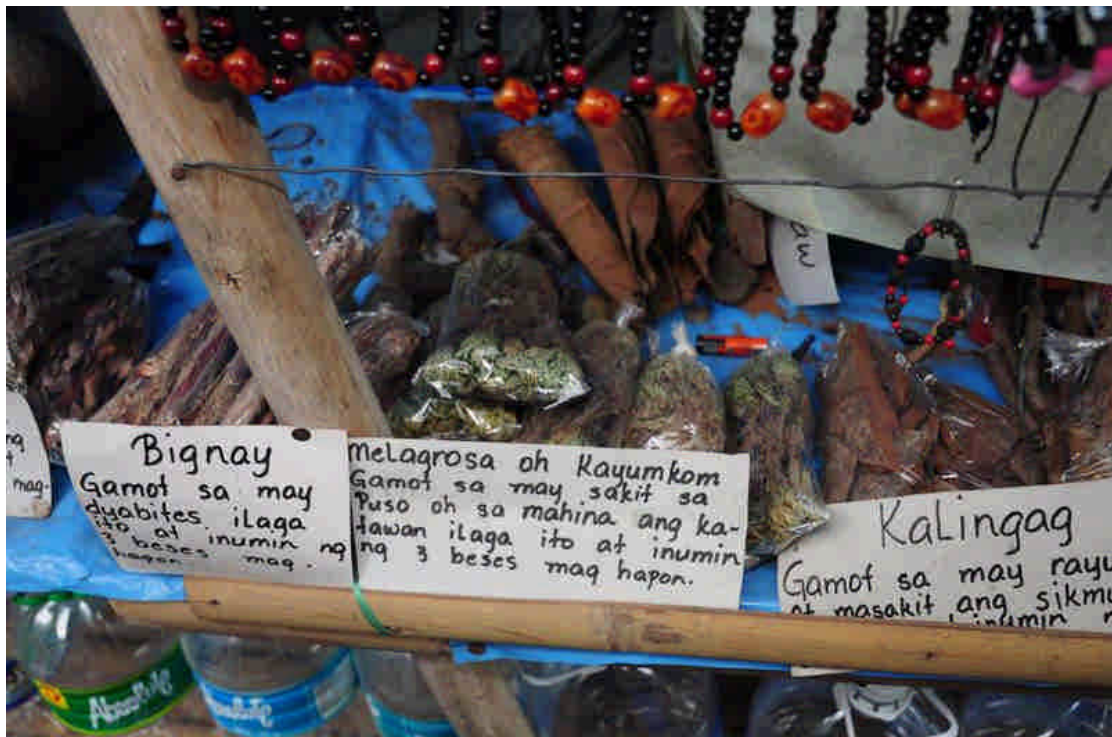 mag.
Bignay
Gamot sa may
dyabites ilaga
ito at inumin ng
3 beses mag.
hapon.
melagrosa oh Kayumkom
Gamot sa may sakit sa
Puso oh sa mahina ang ka-
tawan ilaga ito at inumin
ng 3 beses mag hapon.
aw
KaLingag
Gamot sa may rayu
at masakit ang sikmu
inumin
Absolute
Absolute